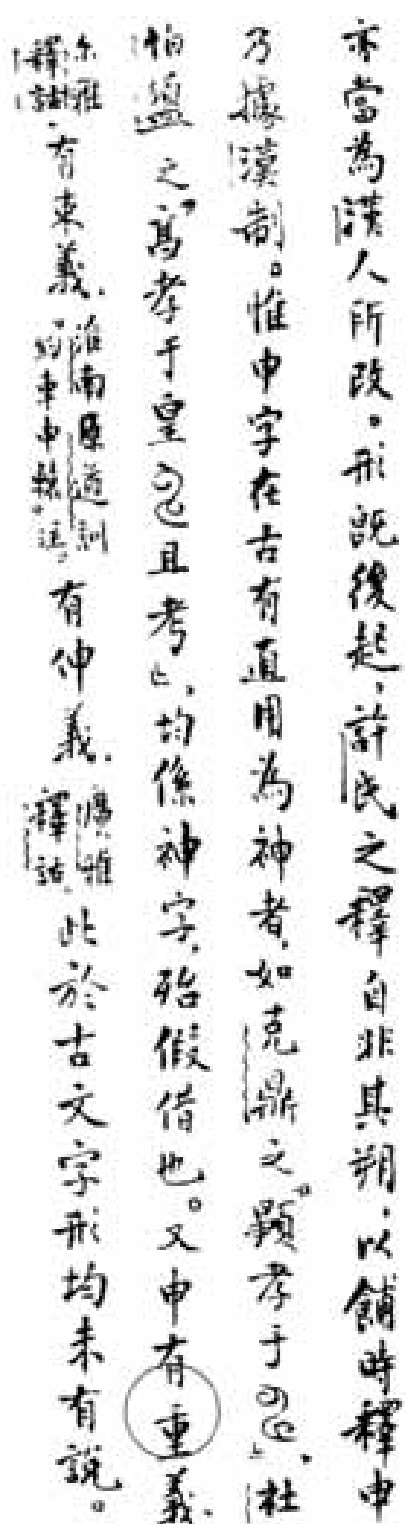 亦當為漢人所改。形既後起，許氏之釋自非其朔，以餔時釋申
乃據漢制。惟申字在古有直用為神者，如克鼎之「顯孝于申」，杜
伯盨之「享孝于皇申且考」，均係神字，殆假借也。又申有重義，
爾雅釋詁。有束義，淮南原道訓「約車申轅」注。有伸義，廣雅釋詁。此於古文字形均未有說。